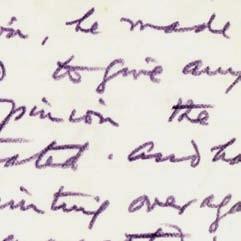 , he made
to give any
pinion the
tated. and ha
inting over aga